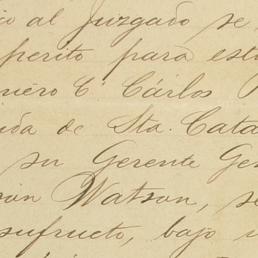 al Juzgado se
perito para est
niero C. Cárlos
da de Sta. Cata
su Gerente Ge
Watson, se
sufructo, bajo